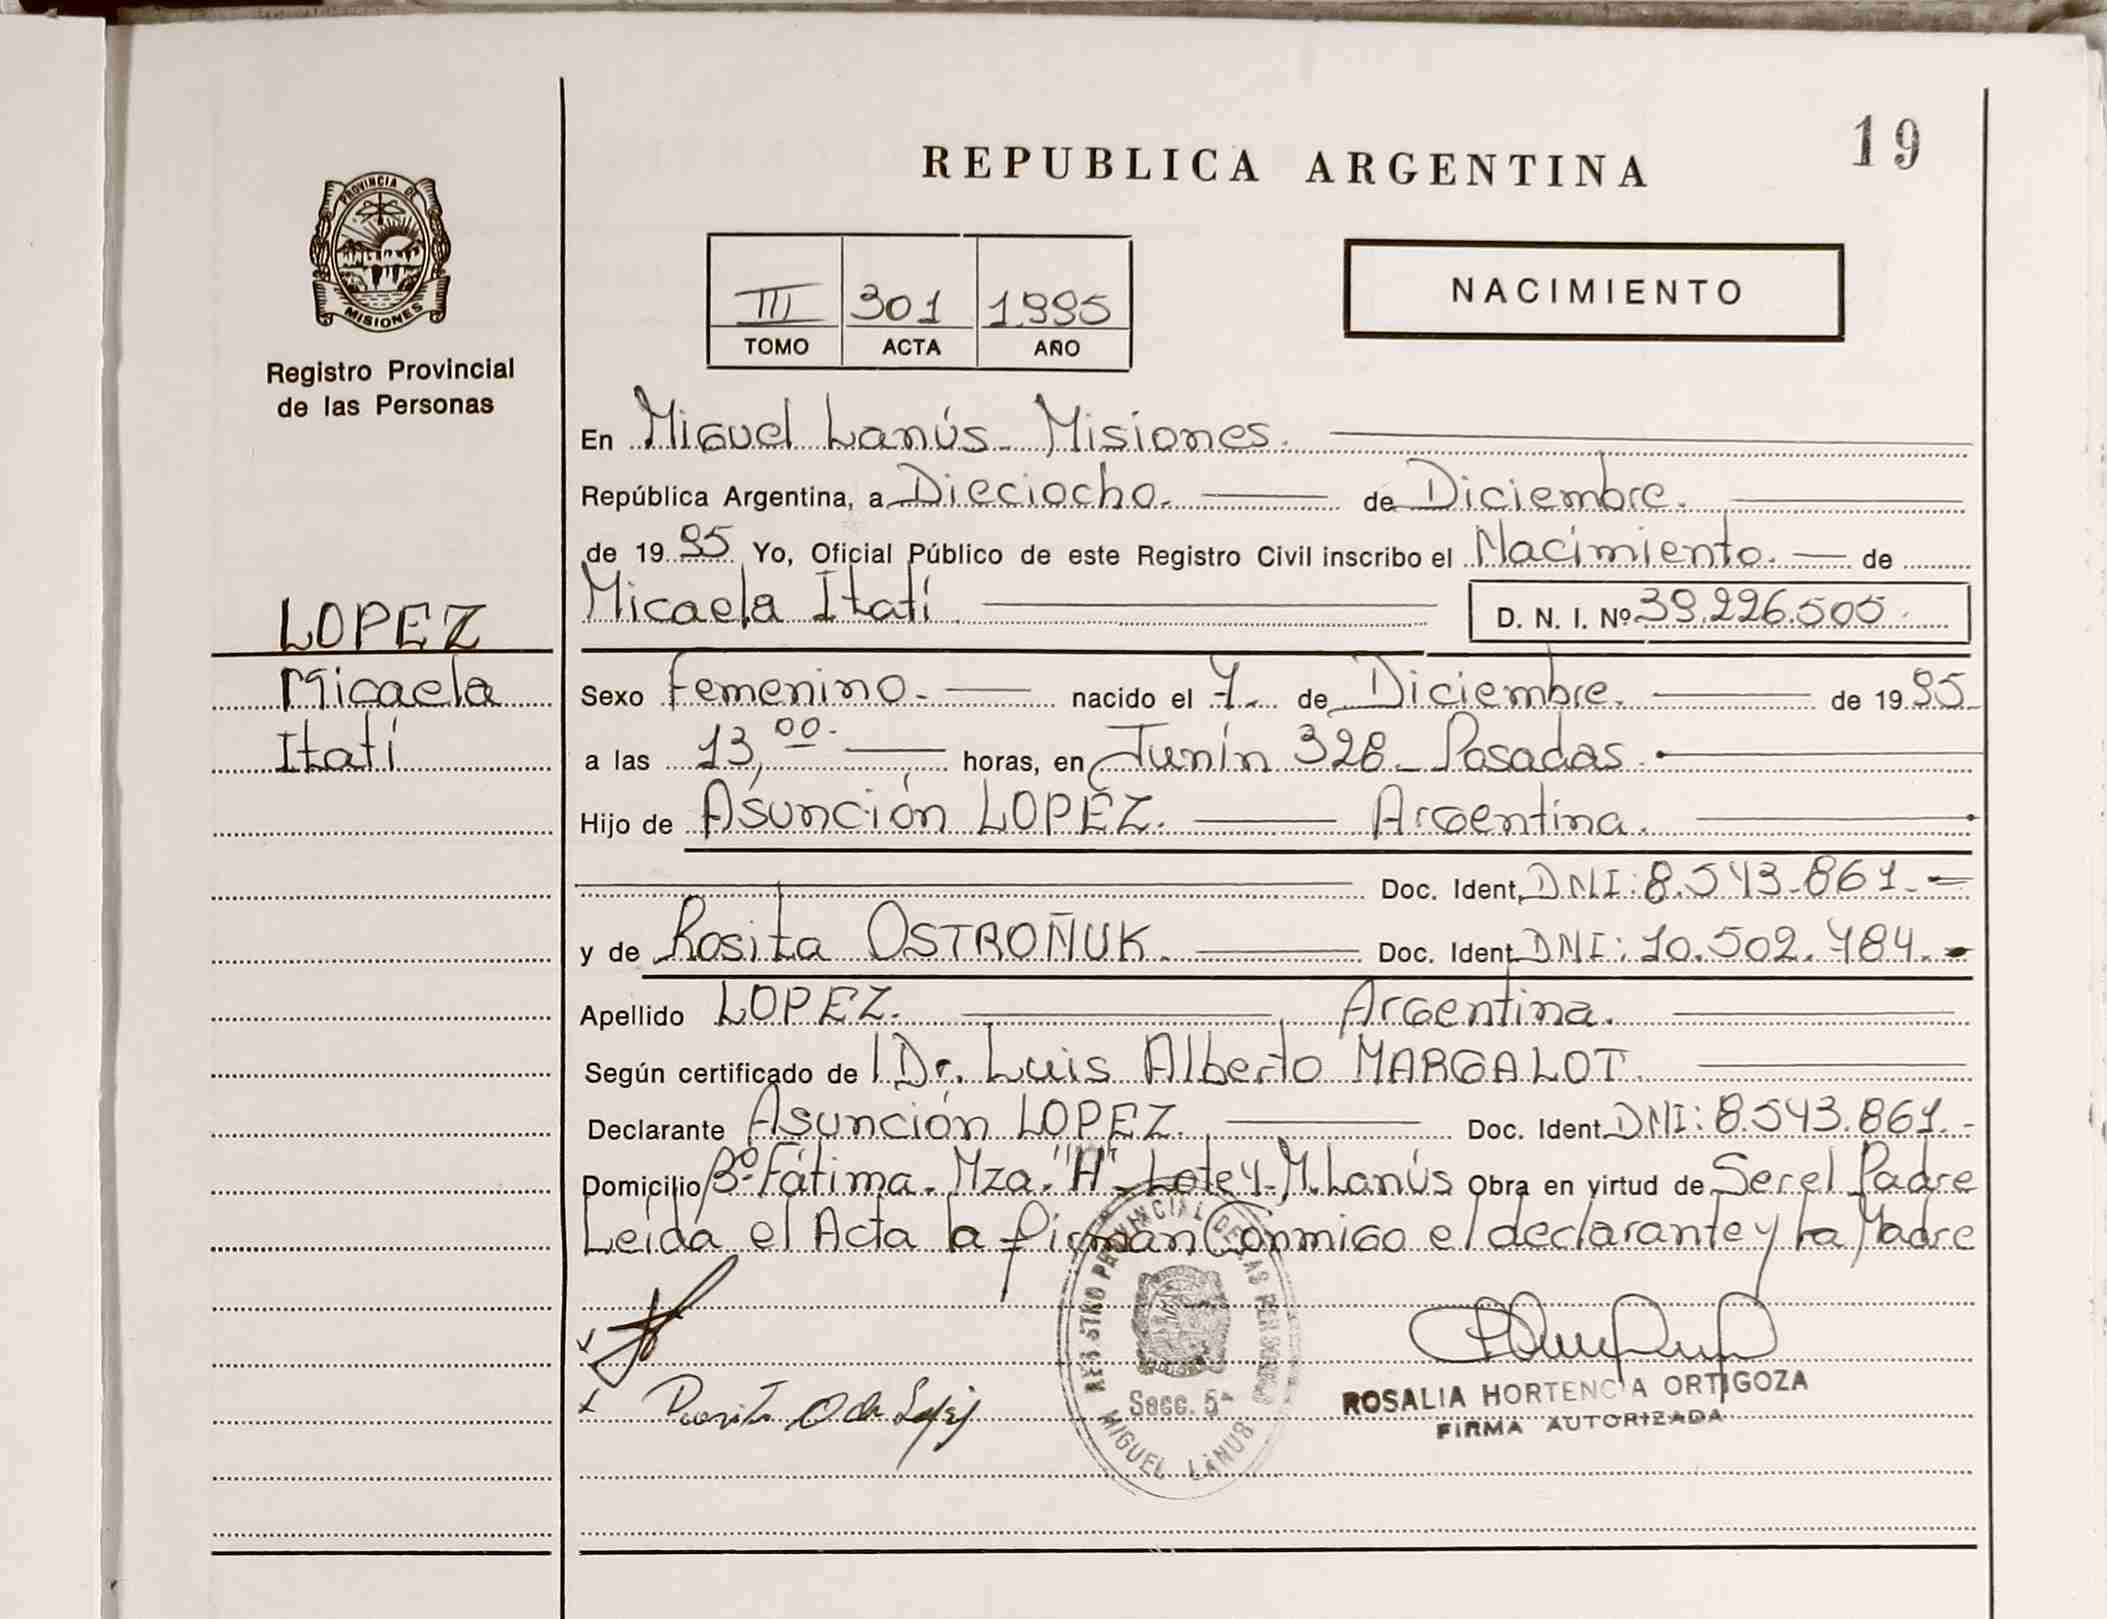 19
REPUBLICA ARGENTINA
PROVINCIA DE
MISIONES
Registro Provincial
de las Personas
III 301 1.995
TOMO ACTA AÑO
NACIMIENTO
En Miguel Lanús - Misiones.
República Argentina, a Dieciocho. de Diciembre.
de 19 95 Yo, Oficial Público de este Registro Civil inscribo el Nacimiento. de
Micaela Itatí
D. N. I. Nº 39.226.505.
LOPEZ
Micaela
Itatí
Sexo Femenino. nacido el 7. de Diciembre. de 19 95
a las 13,00. horas, en Junín 328 - Posadas.
Hijo de Asunción LOPEZ. Argentina.
Doc. Ident. DNI: 8.543.861.-
y de Rosita OSTROÑUK. Doc. Ident. DNI: 10.502.784.-
Apellido LOPEZ. Argentina.
Según certificado de Dr. Luis Alberto MARGALOT.
Declarante Asunción LOPEZ. Doc. Ident. DNI: 8.543.861.-
Domicilio Bº Fátima. Mza. "H" - Lote y. M. Lanús Obra en virtud de Ser el Padre
Leída el Acta la firman Conmigo el declarante y la Madre
REGISTRO PROVINCIAL DE LAS PERSONAS
Secc. 5ª
MIGUEL LANUS
ROSALIA HORTENCIA ORTIGOZA
FIRMA AUTORIZADA